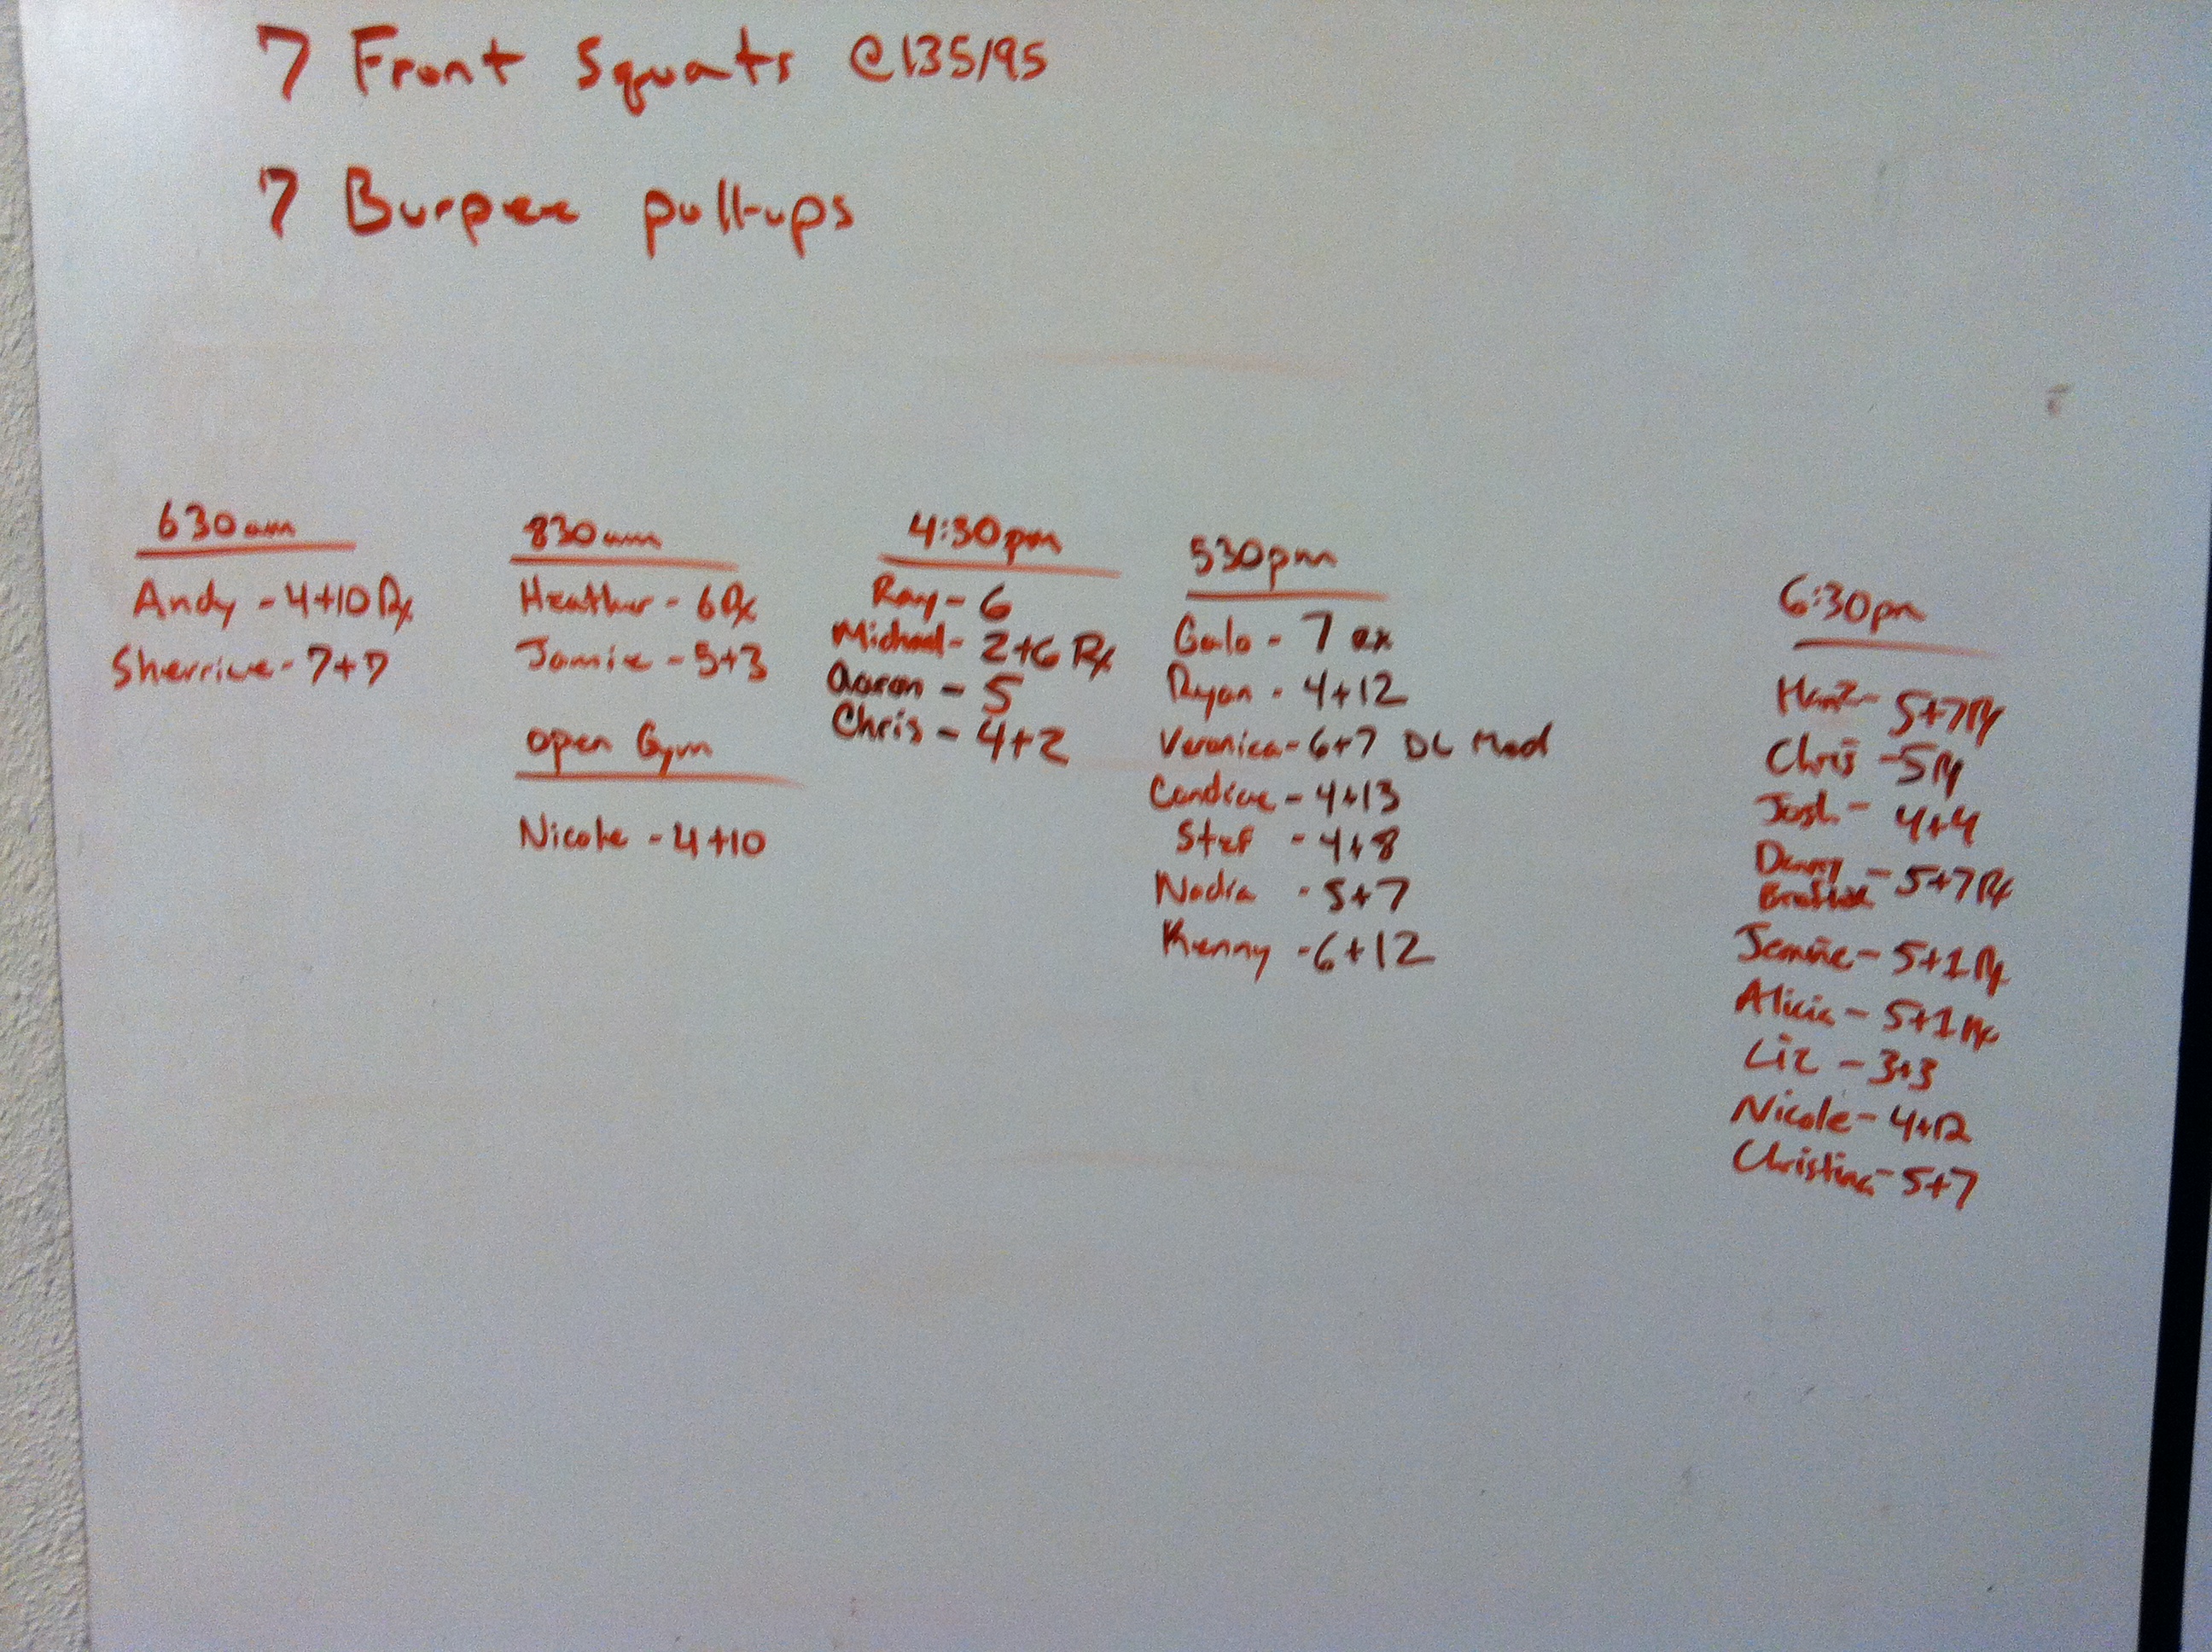 7 Front Squats @135/95
7 Burpee pull-ups
630am
Andy - 4+10 Rx
Sherrice - 7+7
830am
Heather - 6 Rx
Jamie - 5+3
open Gym
Nicole - 4+10
4:30pm
Ray - 6
Michael - 2+6 Rx
Aaron - 5
Chris - 4+2
530pm
Galo - 7 Rx
Ryan - 4+12
Veronica - 6+7 DL Mod
Candice - 4+13
Stef - 4+8
Nadia - 5+7
Kenny - 6+12
6:30pm
- 5+7 Rx
Chris - 5 Rx
Josh - 4+4
Danny - 5+7 Rx
- 5+1 Rx
Alicia - 5+1 Rx
Liz - 3+3
Nicole - 4+12
Christina - 5+7